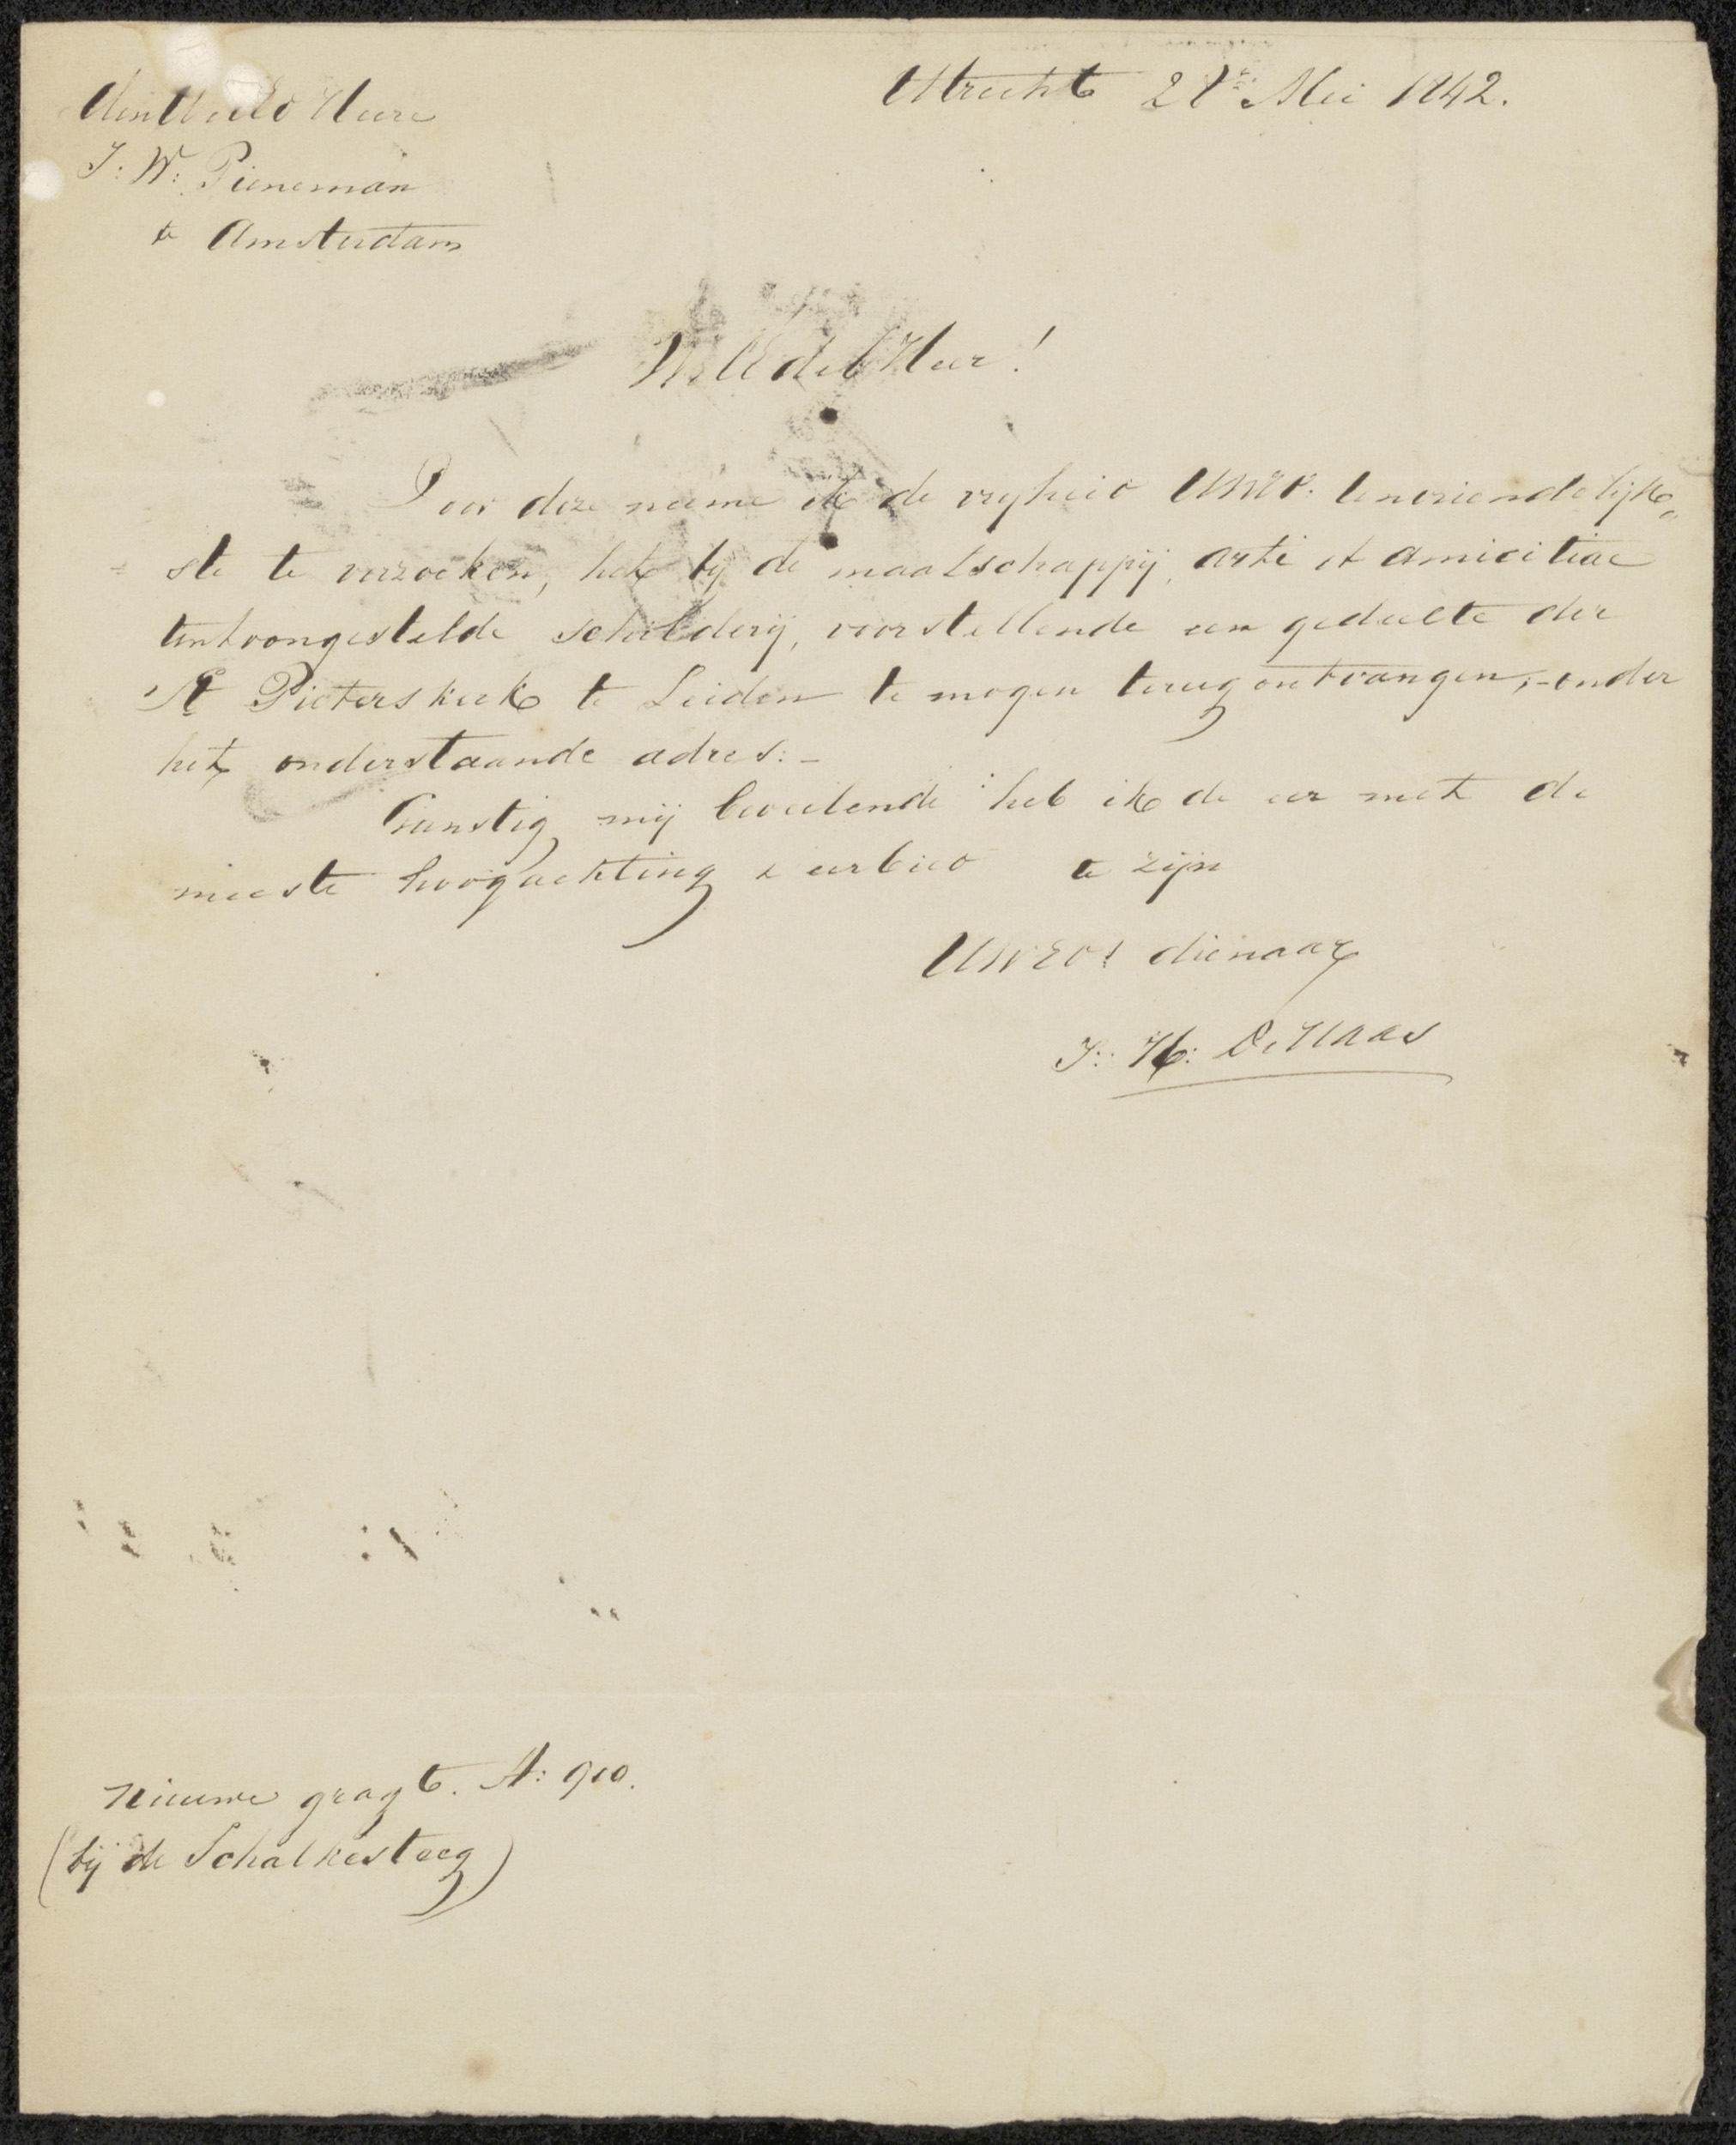 Utrecht 28e Mei 1842.
Den WelEd Heere
J: W: Pieneman
te Amsterdam
WelEdel Heer!
Door deze neeme ik de vryheid UWEd. ten vriendelijk„
ste te verzoeken, het bij de maatschappij arti et amicitiae
tentoongestelde schilderij, voorstellende een gedeelte der
St Pieterskerk te Leiden te mogen terug ontvangen,-onder
het onderstaande adres:-
Gunstig mij bevelende heb ik de eer met de
meeste hoogachting & eerbied te zijn
UWEd! dienaar
J: H: De Haas
Nieuwe gragt. A: 910.
(bij de Schalkesteeg)